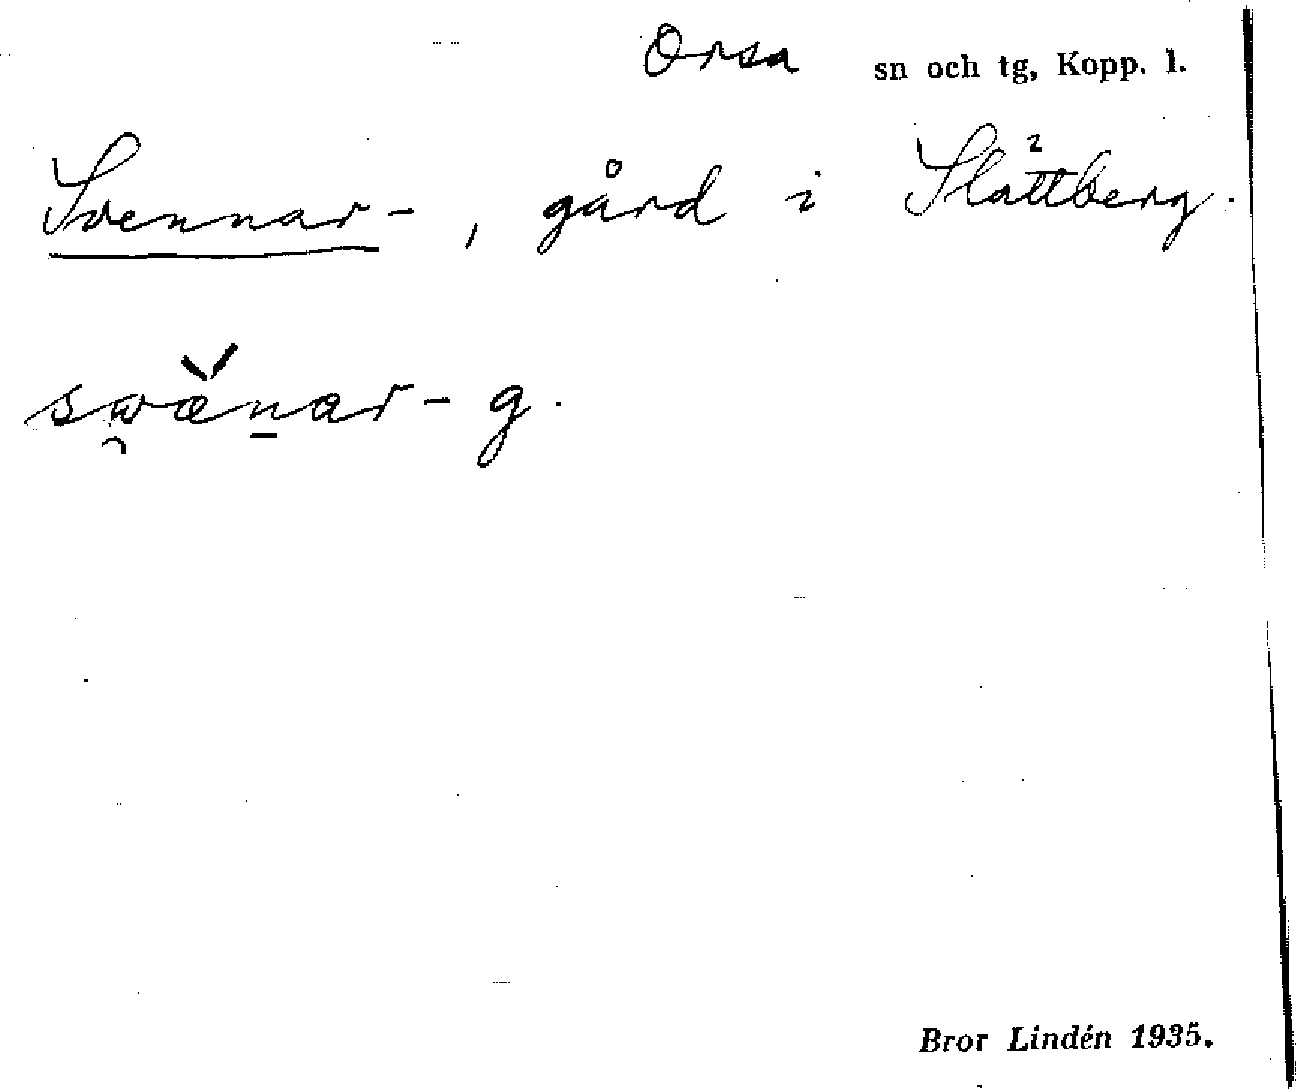 Orsa sn och tg, Kopp. l.
Svennar-, gård i Slättberg.
swä̆n̲ar- g.
Bror Lindén 1935.